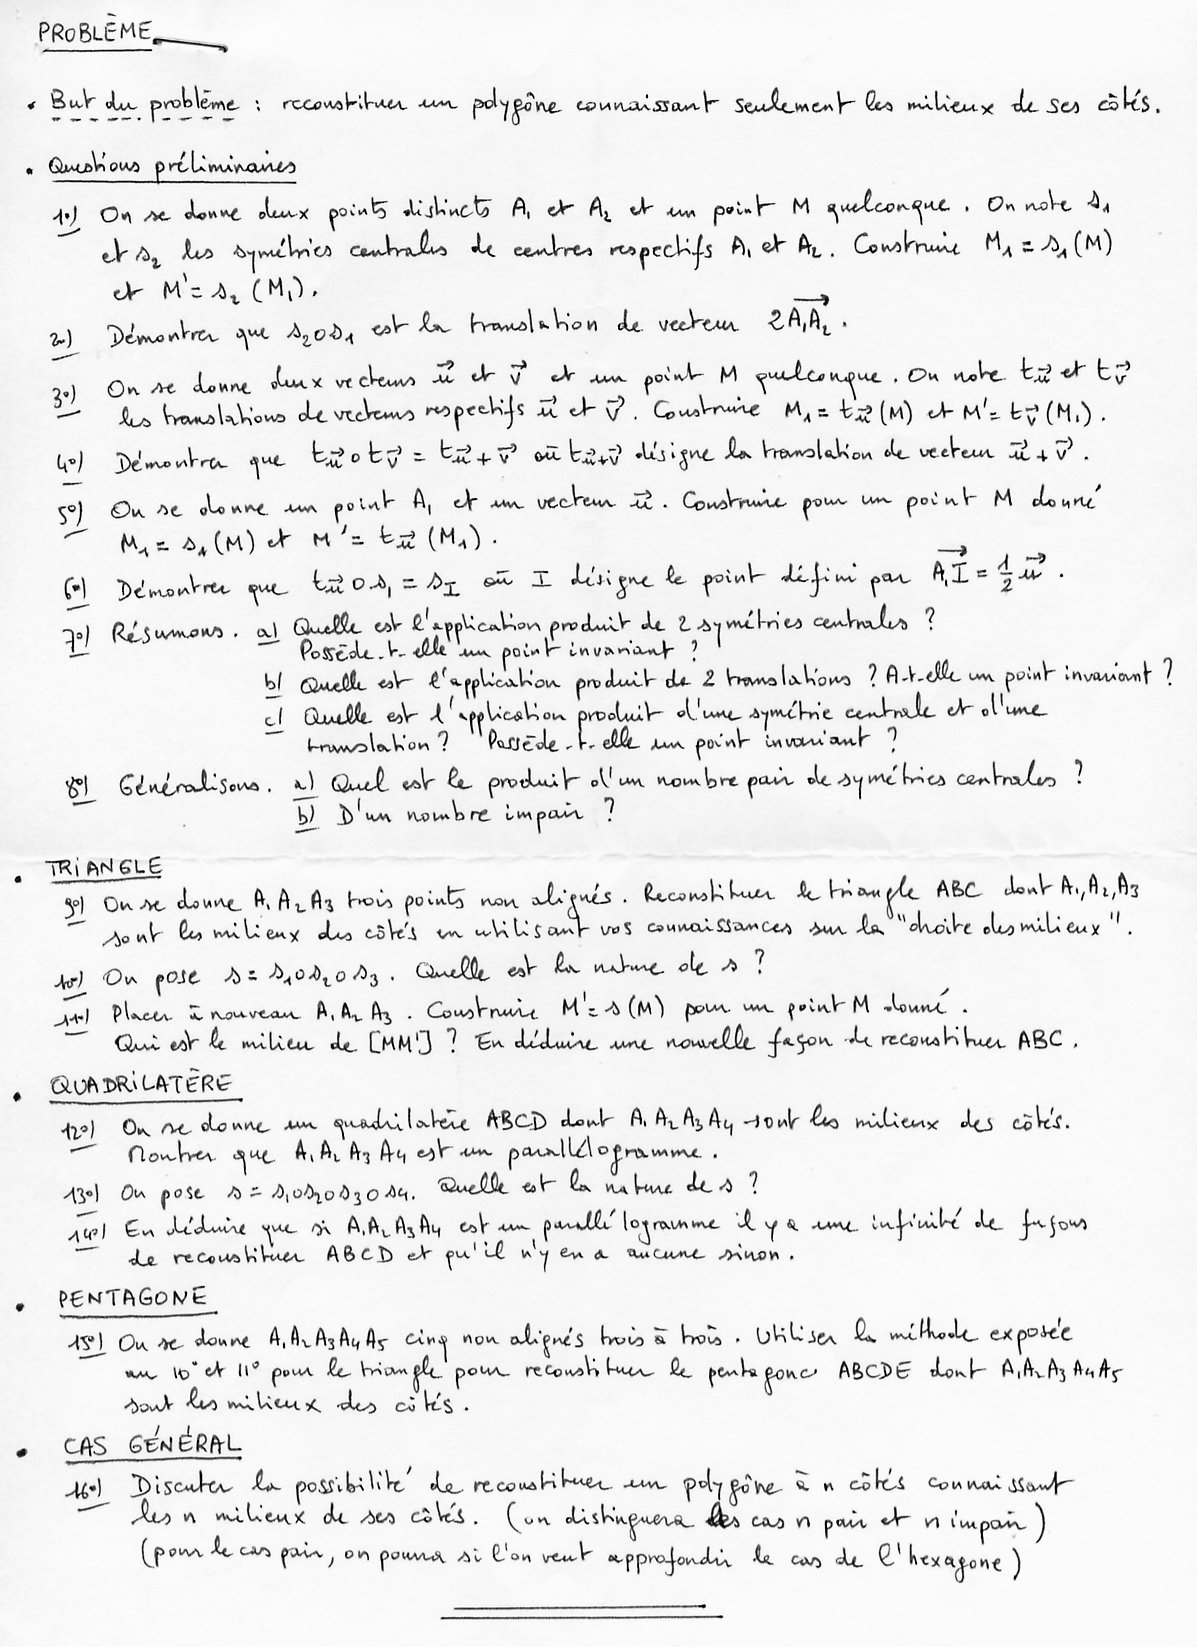 PROBLÈME
• But du problème : reconstituer un polygône connaissant seulement les milieux de ses côtés.
• Questions préliminaires
1°) On se donne deux points distincts A₁ et A₂ et un point M quelconque. On note s₁
et s₂ les symétries centrales de centres respectifs A₁ et A₂. Construire M₁ = s₁(M)
et M' = s₂(M₁).
2°) Démontrer que s₂os₁ est la translation de vecteur 2A₁A₂⃗.
3°) On se donne deux vecteurs u⃗ et v⃗ et un point M quelconque. On note tu⃗ et tv⃗
les translations de vecteurs respectifs u⃗ et v⃗. Construire M₁ = tu⃗(M) et M' = tv⃗(M₁).
4°) Démontrer que tu⃗ o tv⃗ = tu⃗+v⃗ où tu⃗+v⃗ désigne la translation de vecteur u⃗ + v⃗.
5°) On se donne un point A₁ et un vecteur u⃗. Construire pour un point M donné
M₁ = s₁(M) et M' = tu⃗(M₁).
6°) Démontrer que tu⃗ o s₁ = sI où I désigne le point défini par A₁I⃗ = 1/2 u⃗.
7°) Résumons. a) Quelle est l'application produit de 2 symétries centrales ?
Possède-t-elle un point invariant ?
b) Quelle est l'application produit de 2 translations ? A-t-elle un point invariant ?
c) Quelle est l'application produit d'une symétrie centrale et d'une
translation ? Possède-t-elle un point invariant ?
8°) Généralisons. a) Quel est le produit d'un nombre pair de symétries centrales ?
b) D'un nombre impair ?
• TRIANGLE
9°) On se donne A₁ A₂ A₃ trois points non alignés. Reconstituer le triangle ABC dont A₁, A₂, A₃
sont les milieux des côtés en utilisant vos connaissances sur la "droite des milieux".
10°) On pose s = s₁os₂os₃. Quelle est la nature de s ?
11°) Placer à nouveau A₁ A₂ A₃. Construire M' = s(M) pour un point M donné.
Qui est le milieu de [MM'] ? En déduire une nouvelle façon de reconstituer ABC.
• QUADRILATÈRE
12°) On se donne un quadrilatère ABCD dont A₁ A₂ A₃ A₄ sont les milieux des côtés.
Montrer que A₁ A₂ A₃ A₄ est un parallélogramme.
13°) On pose s = s₁os₂os₃os₄. Quelle est la nature de s ?
14°) En déduire que si A₁A₂A₃A₄ est un parallélogramme il y a une infinité de façons
de reconstituer ABCD et qu'il n'y en a aucune sinon.
• PENTAGONE
15°) On se donne A₁A₂A₃A₄A₅ cinq non alignés trois à trois. Utiliser la méthode exposée
au 10° et 11° pour le triangle pour reconstituer le pentagone ABCDE dont A₁A₂A₃A₄A₅
sont les milieux des côtés.
• CAS GÉNÉRAL
16°) Discuter la possibilité de reconstituer un polygône à n côtés connaissant
les n milieux de ses côtés. (on distinguera les cas n pair et n impair)
(pour le cas pair, on pourra si l'on veut approfondir le cas de l'hexagone)